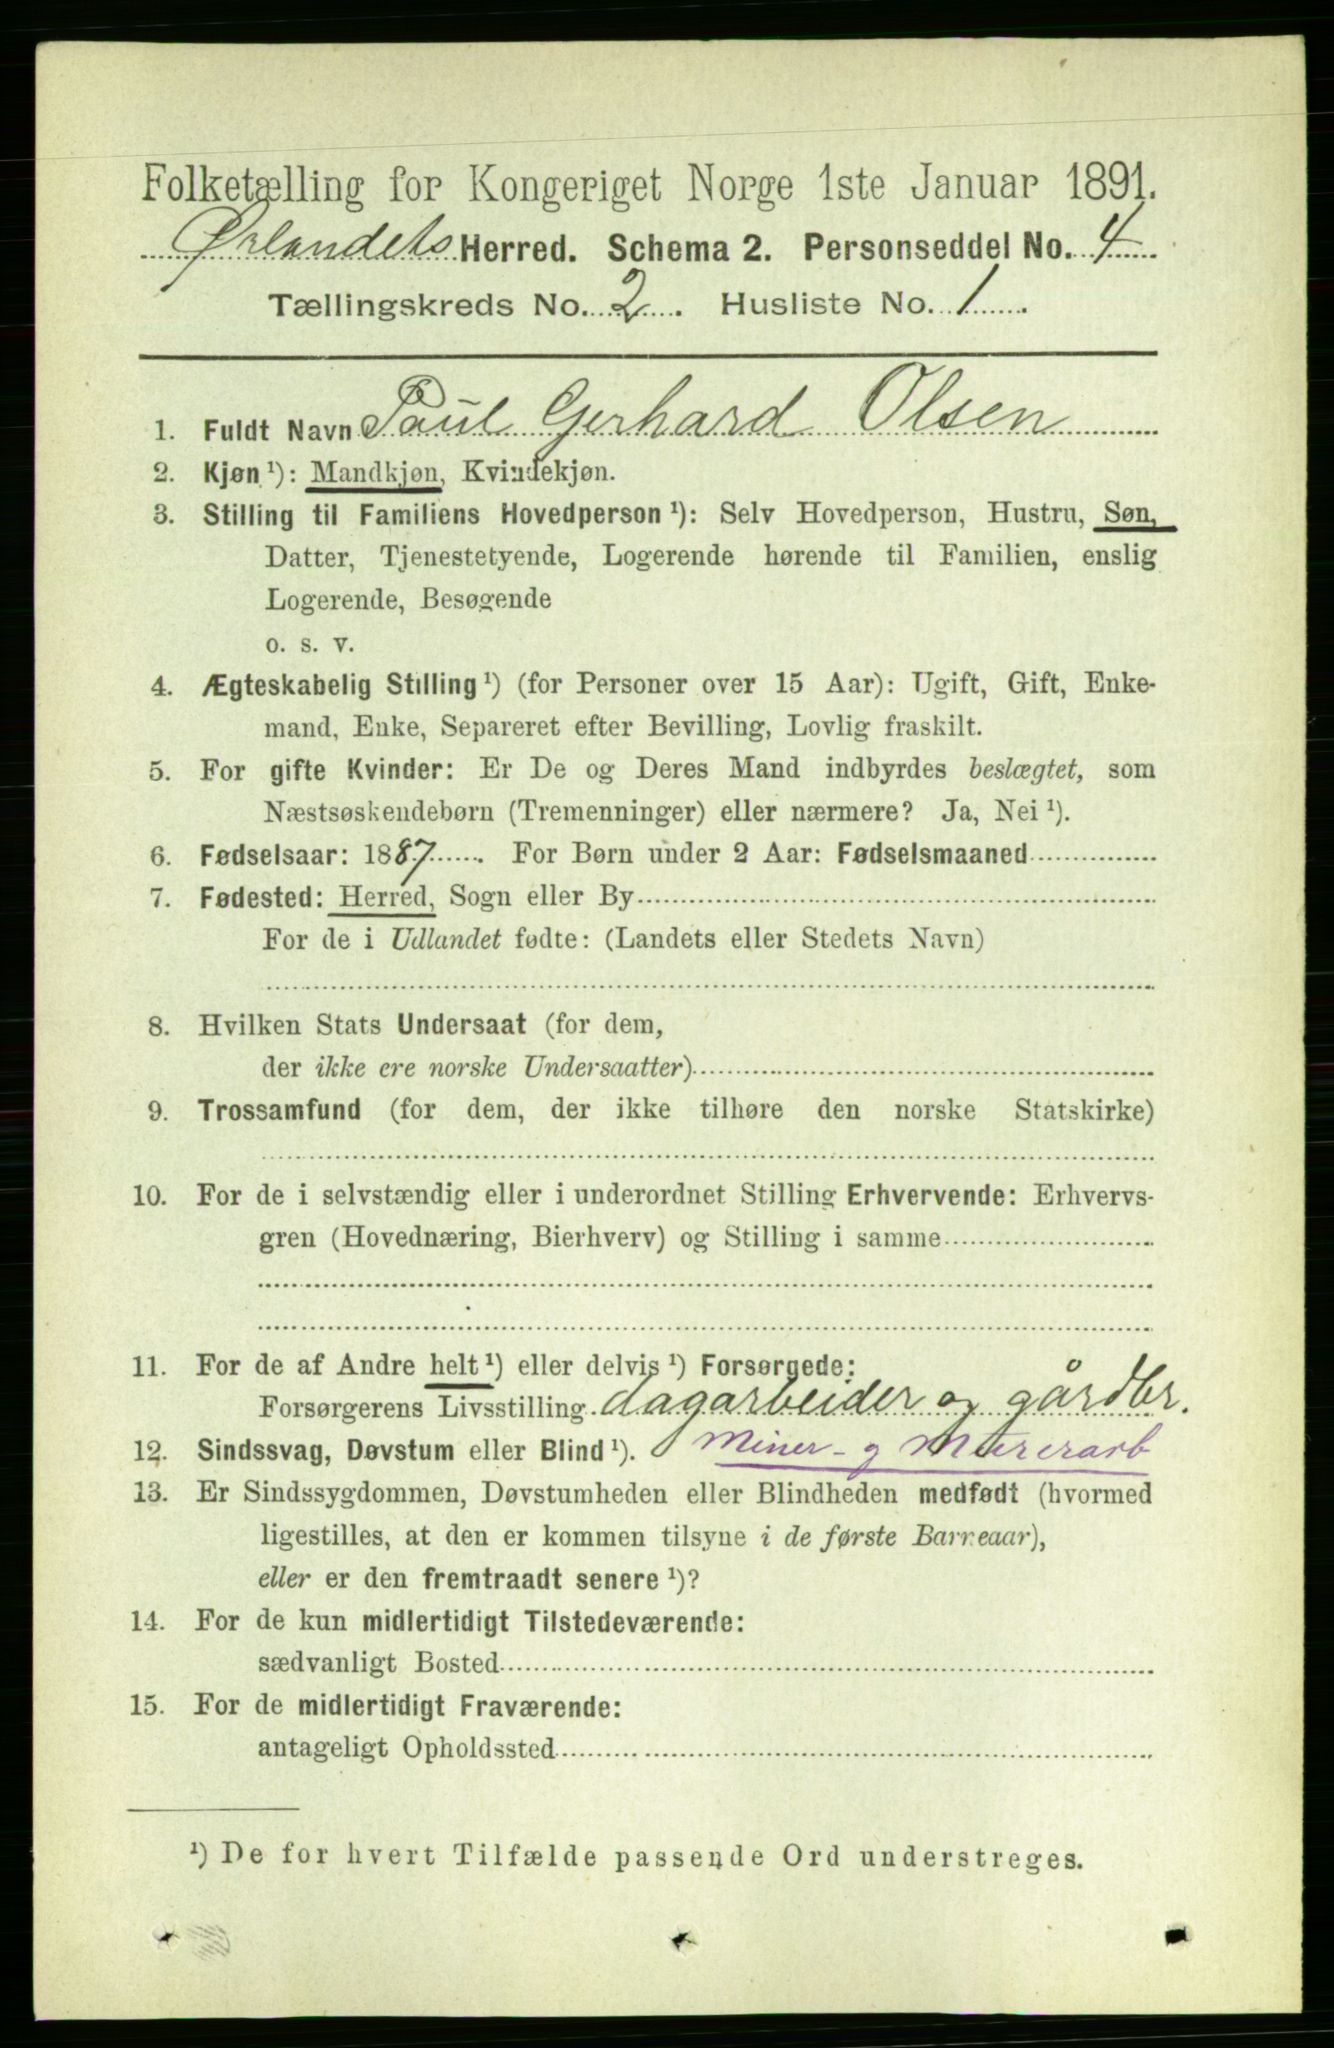 Folketælling for Kongeriget Norge 1ste Januar 1891.
Ørlandets Herred. Schema 2. Personseddel No. 4
Tællingskreds No. 2. Husliste No. 1.
1. Fuldt Navn Paul Gerhard Olsen
2. Kjøn ¹): Mandkjøn, Kvindekjøn.
3. Stilling til Familiens Hovedperson ¹): Selv Hovedperson, Hustru, Søn,
Datter, Tjenestetyende, Logerende hørende til Familien, enslig
Logerende, Besøgende
o. s. v.
4. Ægteskabelig Stilling ¹) (for Personer over 15 Aar): Ugift, Gift, Enke-
mand, Enke, Separeret efter Bevilling, Lovlig fraskilt.
5. For gifte Kvinder: Er De og Deres Mand indbyrdes beslægtet, som
Næstsøskendebørn (Tremenninger) eller nærmere? Ja, Nei ¹).
6. Fødselsaar: 1887. For Børn under 2 Aar: Fødselsmaaned
7. Fødested: Herred, Sogn eller By
For de i Udlandet fødte: (Landets eller Stedets Navn)
8. Hvilken Stats Undersaat (for dem,
der ikke ere norske Undersaatter)
9. Trossamfund (for dem, der ikke tilhøre den norske Statskirke)
10. For de i selvstændig eller i underordnet Stilling Erhvervende: Erhvervs-
gren (Hovednæring, Bierhverv) og Stilling i samme
11. For de af Andre helt ¹) eller delvis ¹) Forsørgede:
Forsørgerens Livsstilling dagarbeider og gårdbr.
12. Sindssvag, Døvstum eller Blind ¹). Miner- og Murerarb
13. Er Sindssygdommen, Døvstumheden eller Blindheden medfødt (hvormed
ligestilles, at den er kommen tilsyne i de første Barneaar),
eller er den fremtraadt senere ¹)?
14. For de kun midlertidigt Tilstedeværende:
sædvanligt Bosted
15. For de midlertidigt Fraværende:
antageligt Opholdssted
¹) De for hvert Tilfælde passende Ord understreges.